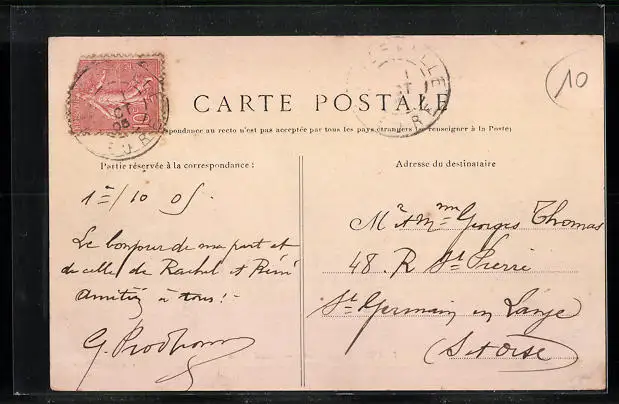 10
CARTE POSTALE
pondance au recto n'est pas acceptée par tous les pays étrangers (se renseigner à la Poste)
Partie réservée à la correspondance :
Adresse du destinataire
1er/10 05.
Le bonjour de ma part et
de celle de Rachel et Rémi
Amitiés à tous ! -
G. Prodhomme
Mr et Mme Georges Thomas
48. R St. Pierre
St. Germain en Laye
(S et Oise)